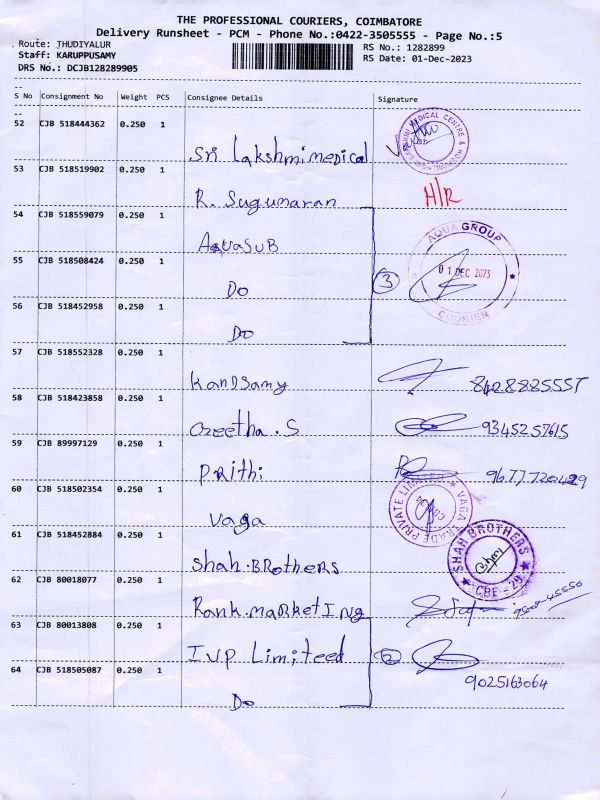 THE PROFESSIONAL COURIERS, COIMBATORE
Delivery Runsheet - PCM - Phone No.:0422-3505555 - Page No.:5
Route: THUDIYALUR RS No.: 1282899
Staff: KARUPPUSAMY RS Date: 01-Dec-2023
DRS No.: DCJB128289905
S No Consignment No Weight PCS Consignee Details Signature
52 CJB 518444362 0.250 1
Sri Lakshmi medical
MEDICAL CENTRE &
53 CJB 518519902 0.250 1
R. Sugumaran H/R
54 CJB 518559079 0.250 1
AquaSUB
AQUA GROUP
01 DEC 2023
COURIER
55 CJB 518508424 0.250 1
Do 3
56 CJB 518452958 0.250 1
Do
57 CJB 518552328 0.250 1
Kandsamy 8428825557
58 CJB 518423858 0.250 1
Geetha.S 9345257615
59 CJB 89997129 0.250 1
Prithi 9677720429
60 CJB 518502354 0.250 1
Vaga
VAGA TRADE PRIVATE LIMITED
61 CJB 518452884 0.250 1
Shah.BRotheRs
SHAH BROTHERS
CBE - 29
62 CJB 80018077 0.250 1
Rank.maRketINg
63 CJB 80013808 0.250 1
IVP Limiteed 2
64 CJB 518505087 0.250 1
9025163064
Do